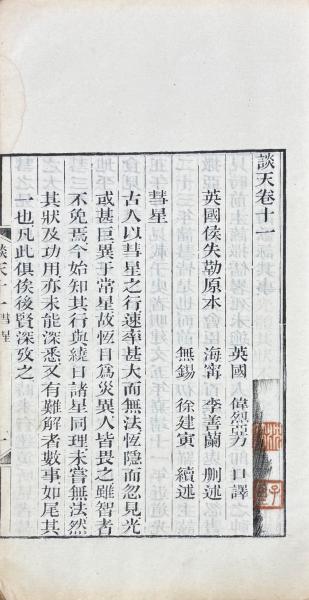 談天卷十一
英國侯失勒原本
英國 偉烈亞力 口譯
海甯 李善蘭 刪述
無錫 徐建寅 續述
彗星
古人以彗星之行速率甚大而無法恆隱而忽見光
或甚巨異于常星故恆目爲災異人皆畏之雖智者
不免焉今始知其行與繞日諸星同理未嘗無法然
其狀及功用亦未能深悉又有難解者數事如尾其
一也凡此俱俟後賢深攷之
談天十一 彗星
一